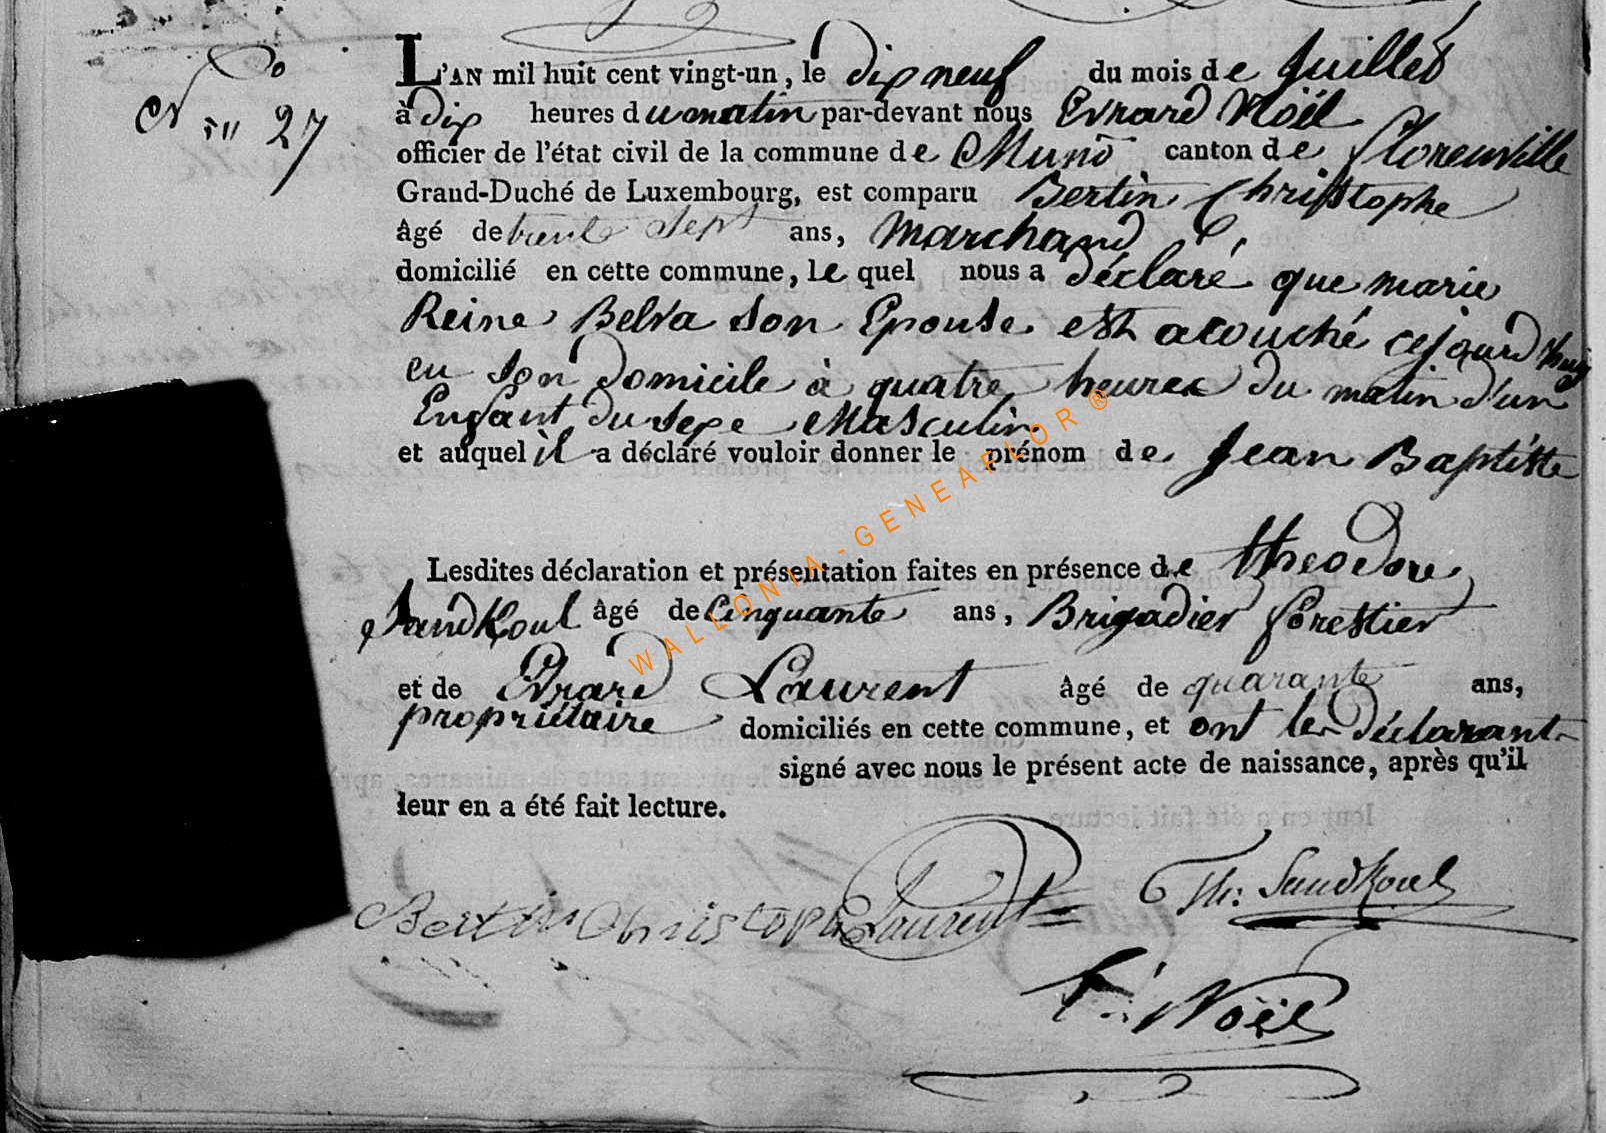 No 27
L'AN mil huit cent vingt-un, le dix neuf du mois de Juillet
à dix heures du matin par-devant nous Evrard Noël
officier de l'état civil de la commune de Muno canton de Florenville
Grand-Duché de Luxembourg, est comparu Bertin Christophe
âgé de trente sept ans, Marchand
domicilié en cette commune, le quel nous a déclaré que marie
Reine Belva son Epouse est acouché cejourd'huy
en son domicile à quatre heures du matin d'un
Enfant du sexe Masculin
et auquel il a déclaré vouloir donner le prénom de Jean Baptiste
Lesdites déclaration et présentation faites en présence de theodore
Sandkoul âgé de Cinquante ans, Brigadier forestier
et de Evrard Laurent âgé de quarante ans,
propriétaire domiciliés en cette commune, et ont les déclarant
signé avec nous le présent acte de naissance, après qu'il
leur en a été fait lecture.
Bertin Christophe Laurent Th: Sandkoul
E: Noël
WALLONIA-GENEAFLOR ®